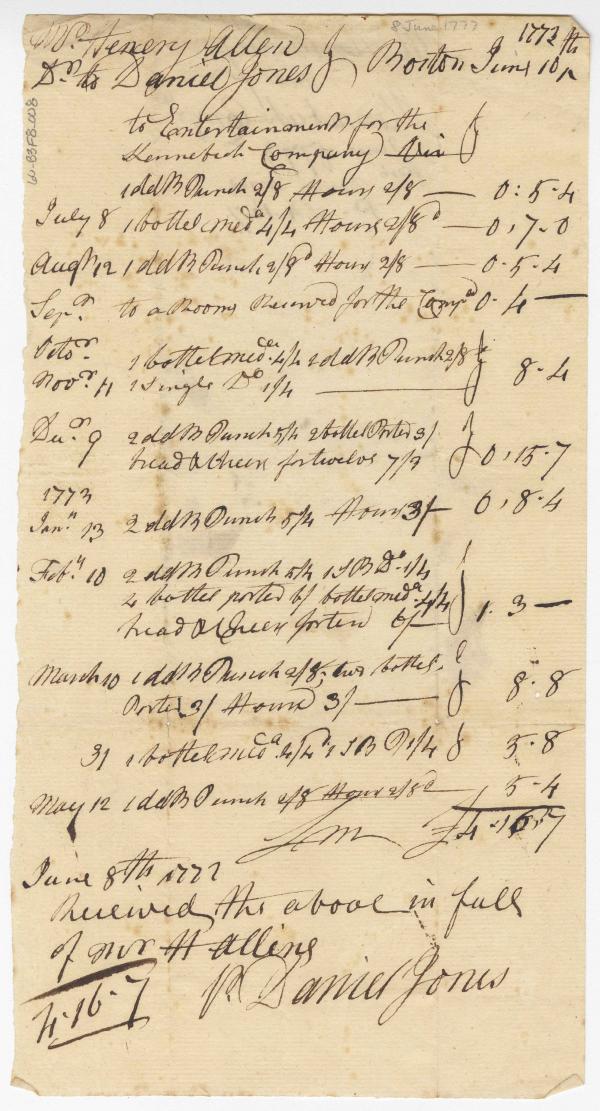 8 June 1777
Mr. Henery Allen
1772
Dr. to Daniel Jones } Boston June 10th
to Entertainments for the
Kennebeck Company Viz
1 dd B Punch 2/8 Hours 2/8 — 0:5-4
July 8 1 bottel meda 4/4 Hours 2/8d — 0,7-0
Augst 12 1 dd B Punch 2/8d Hour 2/8 — 0-5-4
Sepr. to a Rooms Received for the Compd 0-4—
Octor. 1 bottel mede. 4/4 1 dd B Punch 2/8
Novr. 11 1 Single Do 1/4 — 8-4
Decr. 9 2 dd B Punch 5/4 2 bottel Porter 3/
bread & Cheere for twelve 7/3 0,15-7
1773
Jany. 13 2 dd B Punch 5/4 Hours 3/ 0,8-4
Feby. 10 2 dd B Punch 5/4 1 S B Do. 1/4
4 bottel ported 6/ bottel meda. 4/4
bread & Cheer for ten 6/ 1-3—
March 10 1 dd B Punch 2/8, two bottel.
Porter 3/ Hours 3/ — 8-8
31 1 bottel meda. 4/4d 1 S B P 1/4 5-8
May 12 1 dd B Punch 2/8 Hour 2/8d 5-4
£4-16-7
June 8th 1773
Received the above in full
of mr H Alline
4-16-7 Pr Daniel Jones